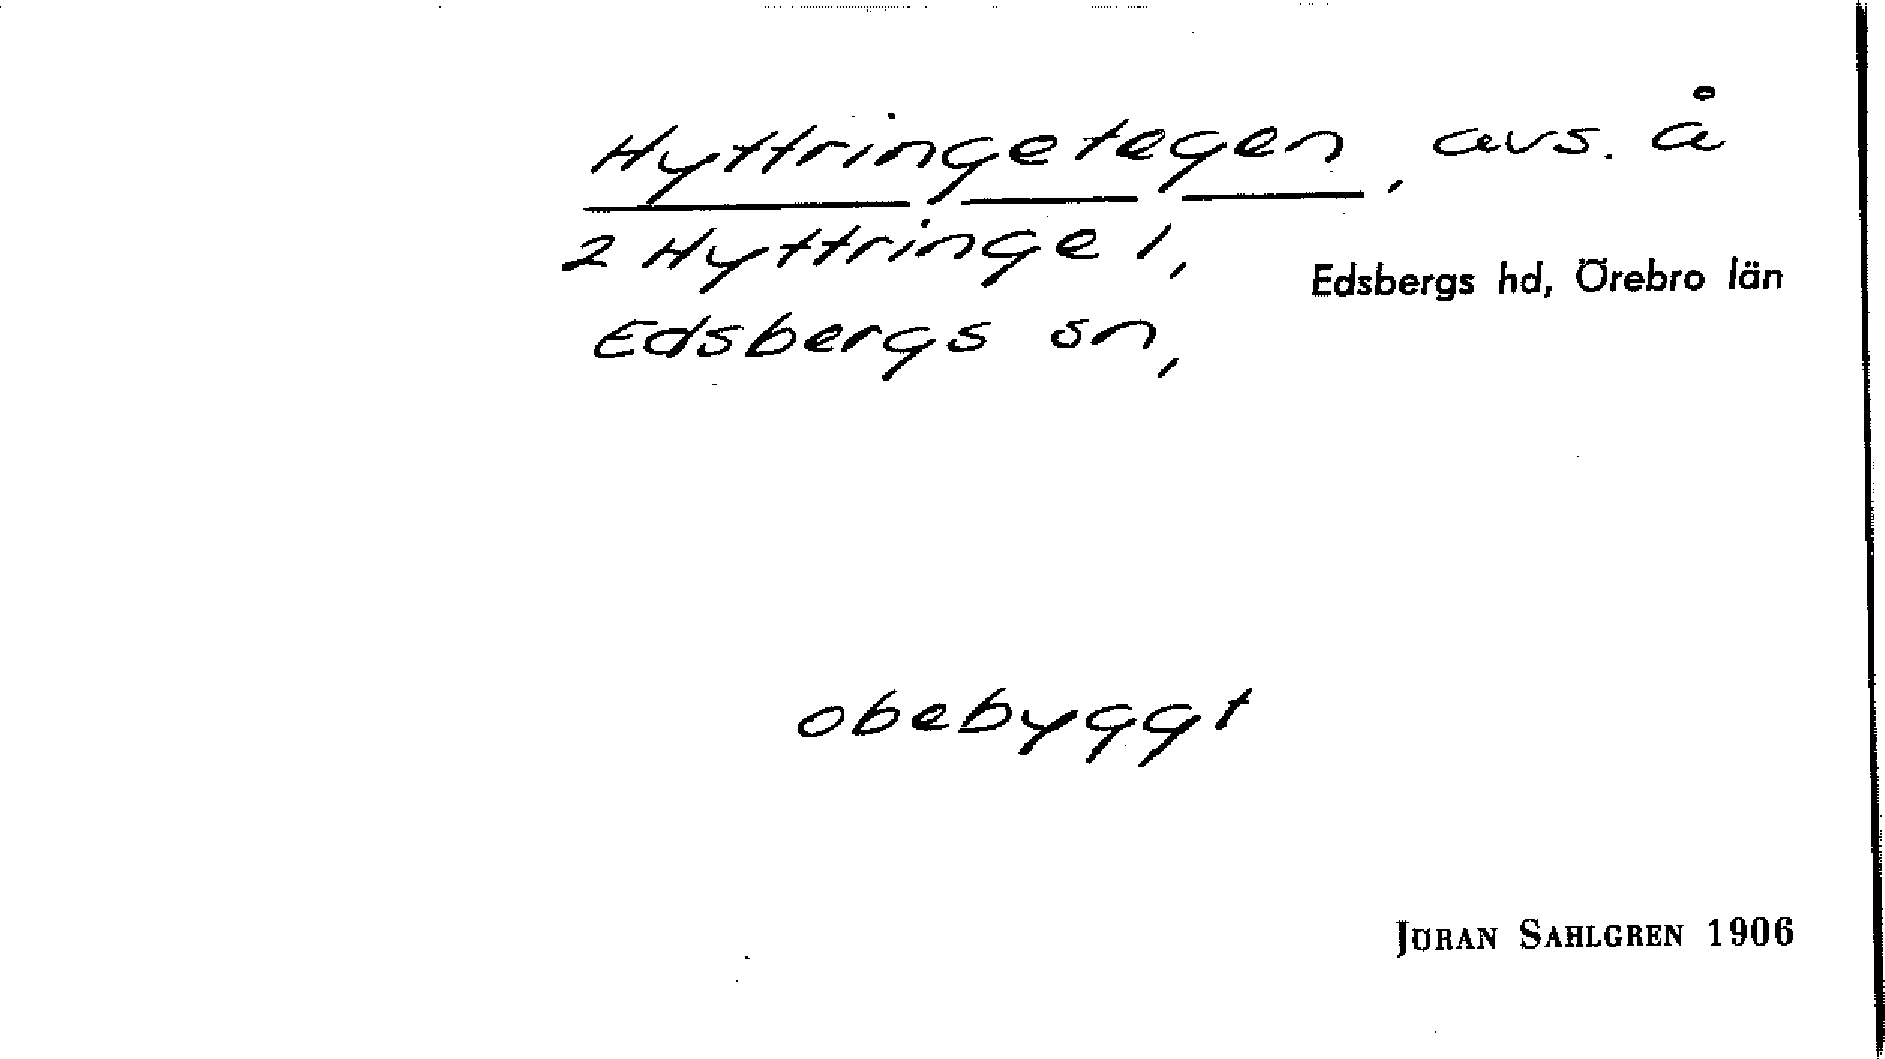 Hyttringetegen, avs. å
2 Hyttringe 1,
Edsbergs hd, Örebro län
Edsbergs sn,
obebyggt
JÖRAN SAHLGREN 1906